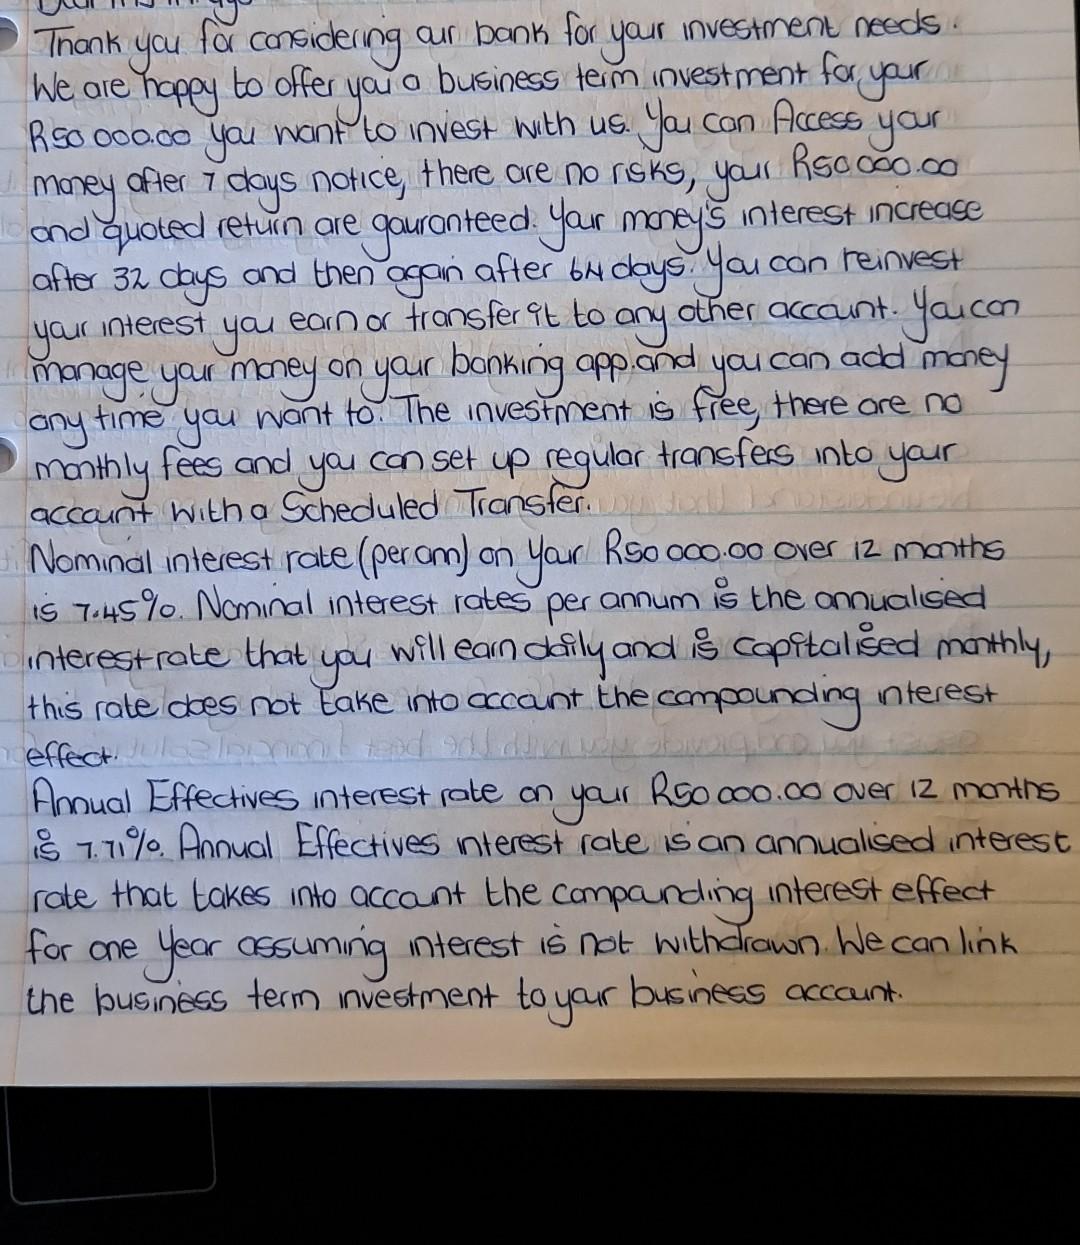 Thank you for considering our bank for your investment needs.
We are happy to offer you a business term investment for your
R50 000.00 you want to invest with us. You can Access your
money after 7 days notice, there are no risks, your R50 000.00
and quoted return are gauranteed. Your money's interest increase
after 32 days and then again after 64 days. You can reinvest
your interest you earn or transfer it to any other account. You can
manage your money on your banking app and you can add money
any time you want to. The investment is free, there are no
monthly fees and you can set up regular transfers into your
account with a Scheduled Transfer.
Nominal interest rate (per am) on your R50 000.00 over 12 months
is 7.45%. Nominal interest rates per annum is the annualised
interest rate that you will earn daily and is capitalised monthly,
this rate does not take into account the compounding interest
effect.
Annual Effectives interest rate on your R50 000.00 over 12 months
is 7.71%. Annual Effectives interest rate is an annualised interest
rate that takes into account the compounding interest effect
for one year assuming interest is not withdrawn. We can link
the business term investment to your business account.